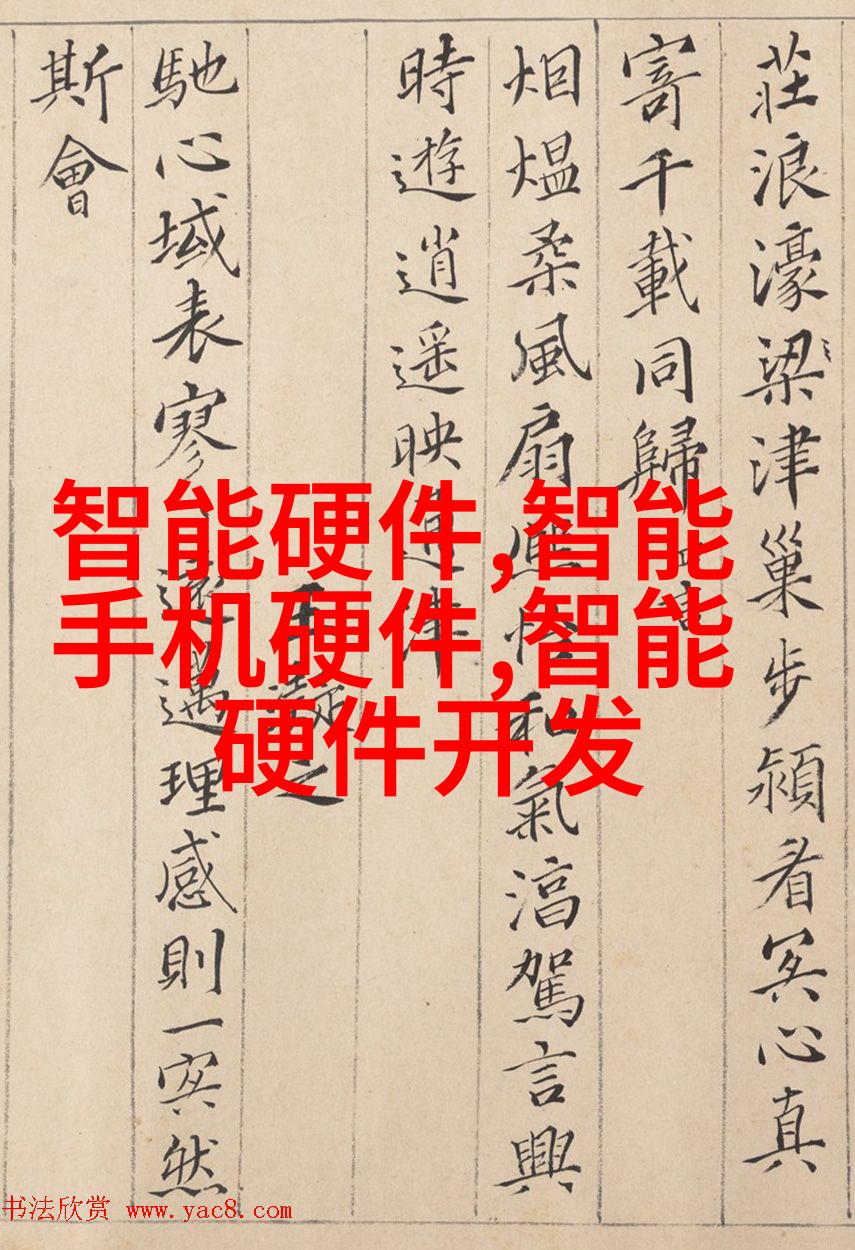 莊浪濠梁津巢步潁眉冥心真
寄千載同歸
烟熅柔風扇熙怡和氣淳駕言興
時遊逍遥映通津
王之
馳心域表寥遠邁理感則一冥然
斯會
智能硬件,智能
手机硬件,智能
硬件开发
书法欣赏 www.yac8.com